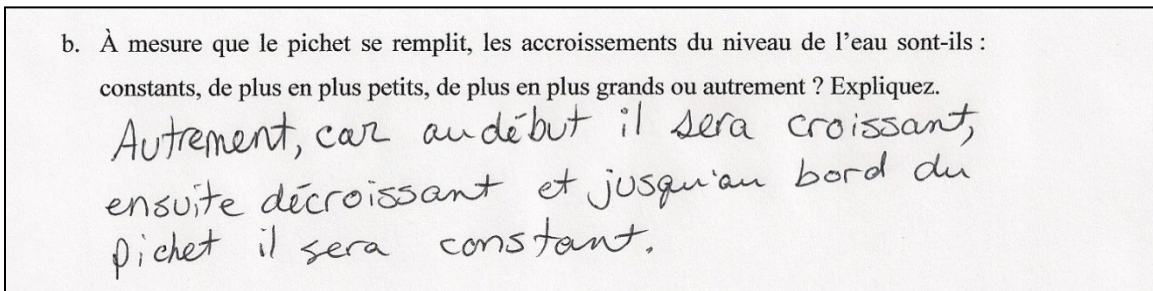 b. À mesure que le pichet se remplit, les accroissements du niveau de l'eau sont-ils :
constants, de plus en plus petits, de plus en plus grands ou autrement ? Expliquez.
Autrement, car au début il sera croissant,
ensuite décroissant et jusqu'au bord du
pichet il sera constant.